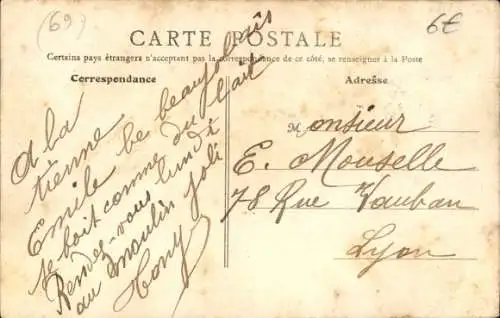 (69)
6€
CARTE POSTALE
Certains pays étrangers n'acceptant pas la correspondance de ce côté, se renseigner à la Poste
Correspondance
Adresse
A la
tienne
Emile le beaujolais
se boit comme du lait
Rendez-vous lundi
au moulin joli
Tony
Monsieur
E. Mouselle
78 Rue Vauban
Lyon